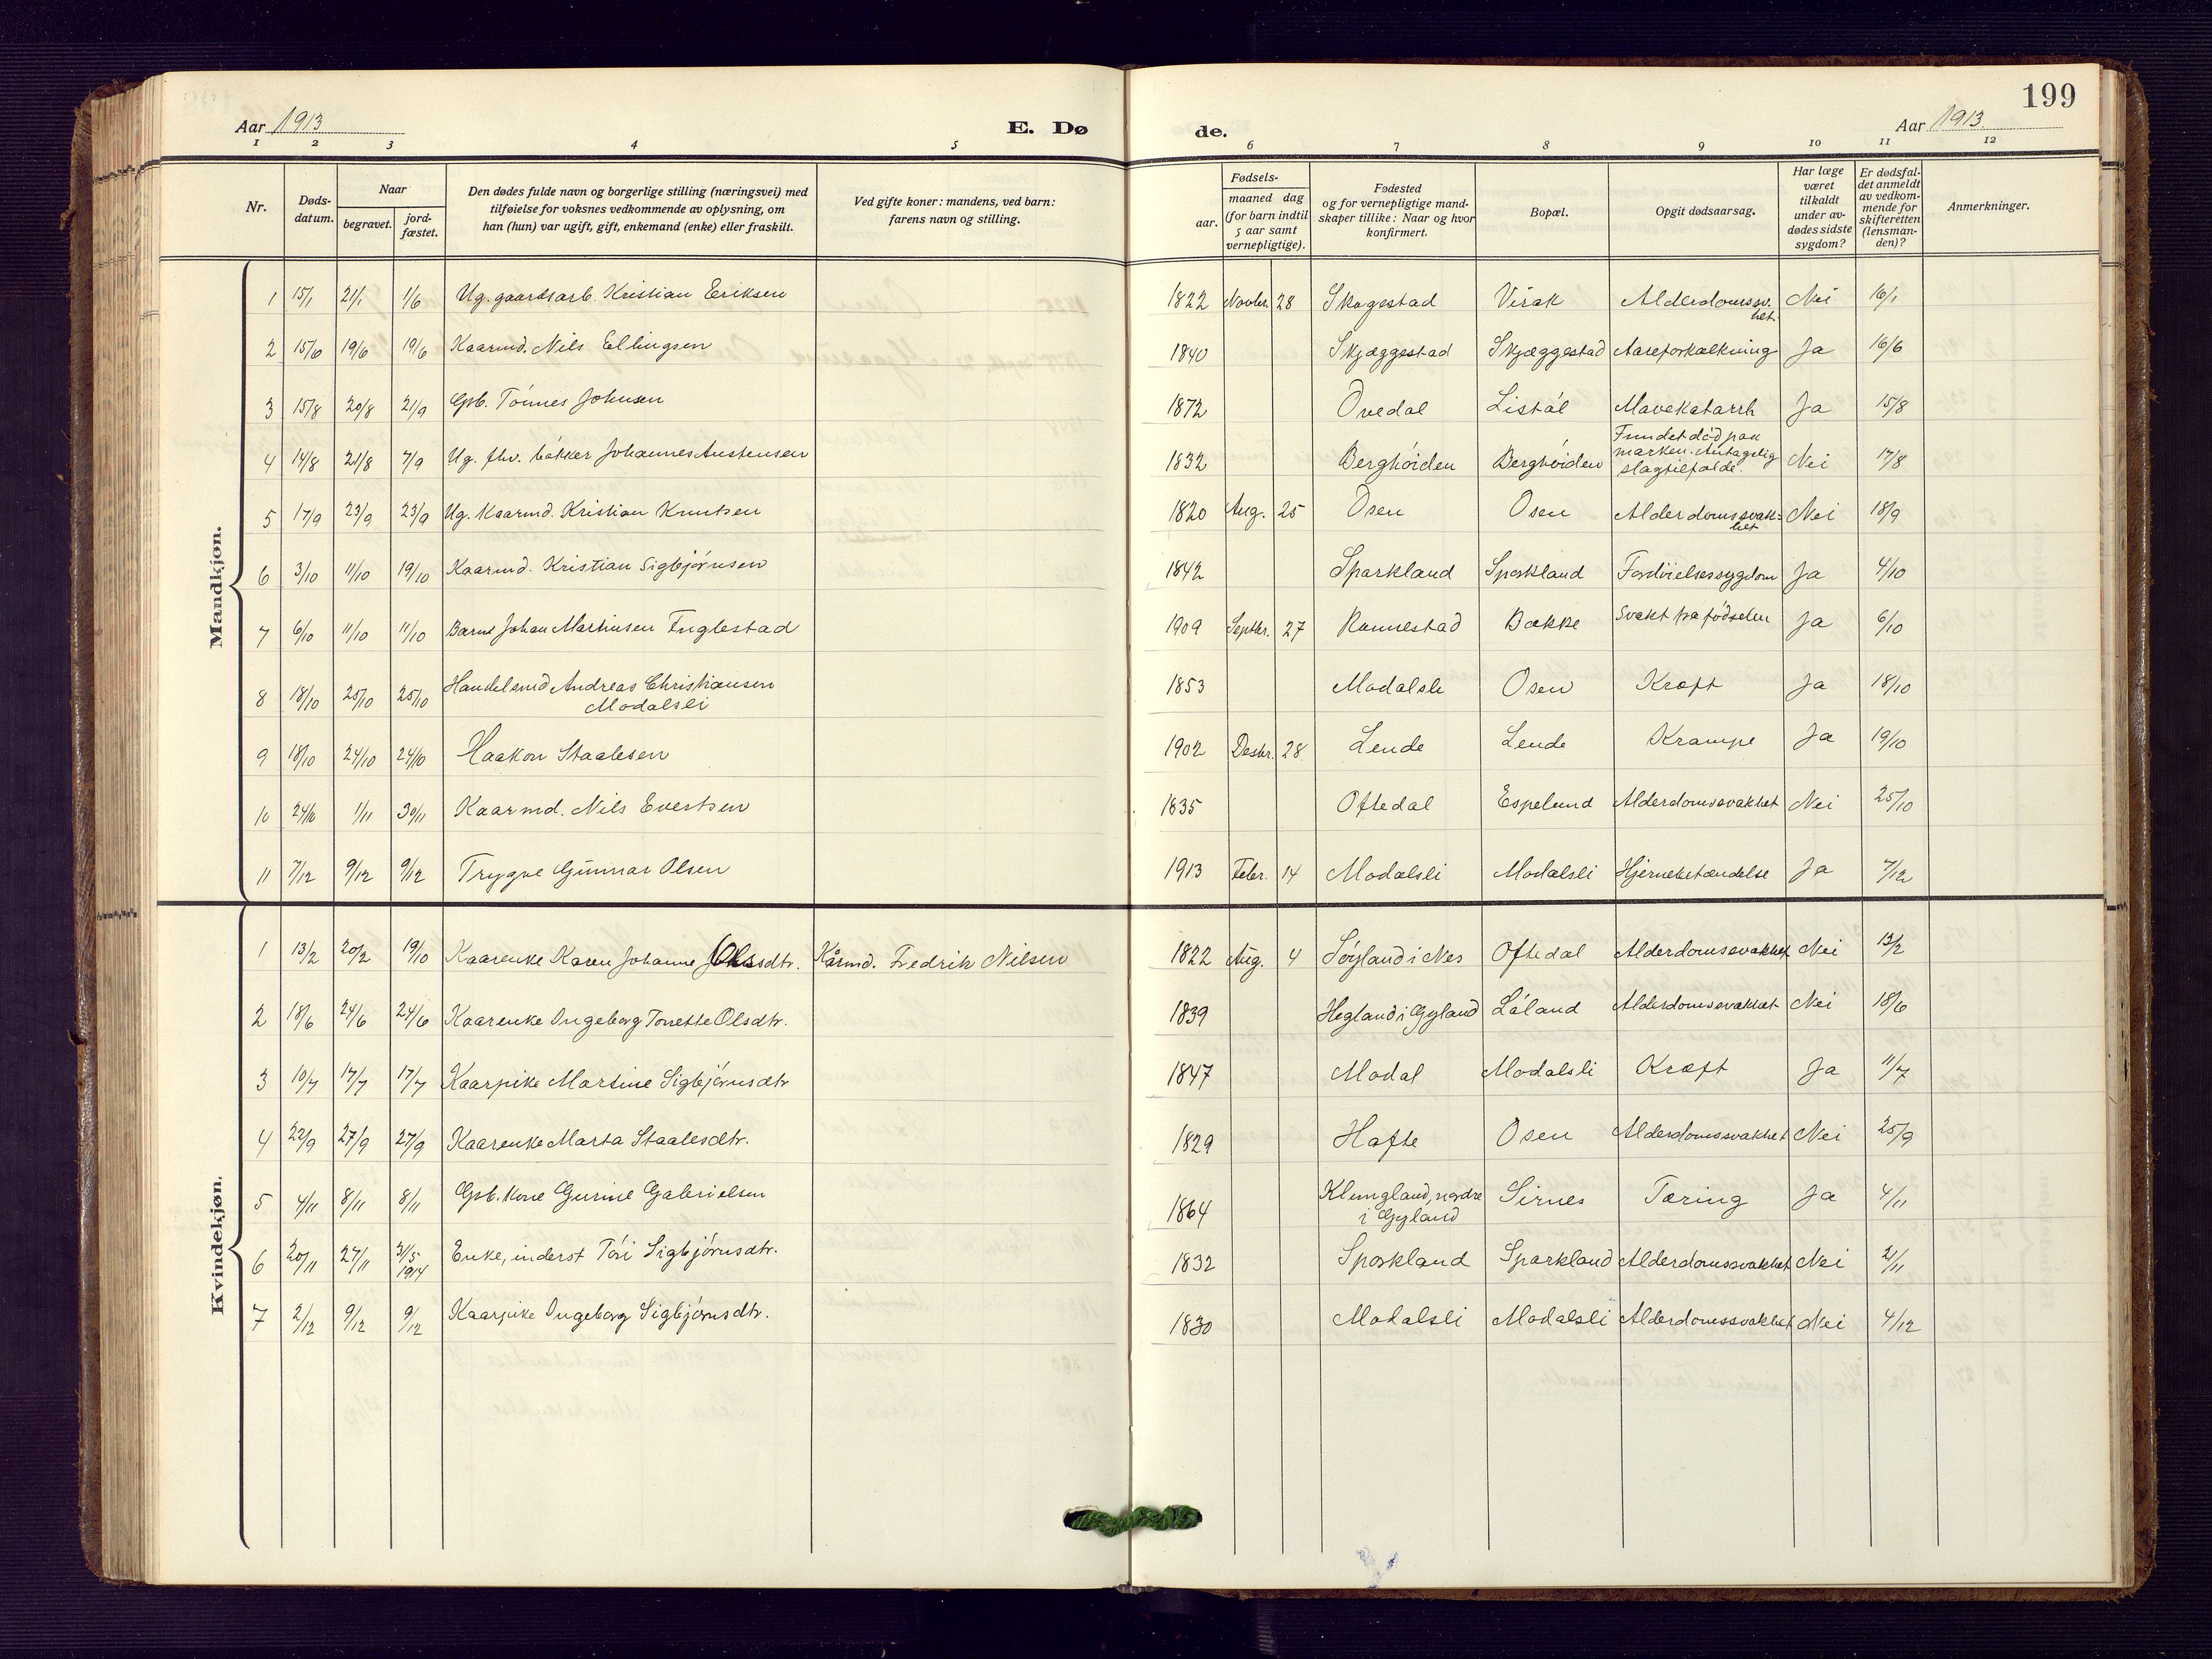 199
Aar 1913 E. Dø de. Aar 1913
1 2 3 4 5 6 7 8 9 10 11 12
Nr.
Døds-
datum.
Naar
begravet.
jord-
fæstet.
Den dødes fulde navn og borgerlige stilling (næringsvei) med
tilføielse for voksnes vedkommende av oplysning, om
han (hun) var ugift, gift, enkemand (enke) eller fraskilt.
Ved gifte koner: mandens, ved barn:
farens navn og stilling.
Fødsels-
aar.
maaned dag
(for barn indtil
5 aar samt
vernepligtige).
Fødested
og for vernepligtige mand-
skaper tillike: Naar og hvor
konfirmert.
Bopæl.
Opgit dødsaarsag.
Har læge
været
tilkaldt
under av-
dødes sidste
sygdom?
Er dødsfal-
det anmeldt
av vedkom-
mende for
skifteretten
(lensman-
den)?
Anmerkninger.
Mandkjøn.
1 15/1 21/1 1/6 Ug. gaardsarb. Kristian Eriksen 1822 Novbr. 28 Skogestad Virak Alderdomssv. Nei 16/1
het.
2 15/6 19/6 19/6 Kaarmd. Nils Ellingsen 1840 Skjæggestad Skjæggestad Aareforkalkning Ja 16/6
3 15/8 20/8 21/9 Gsb. Tónnes Johnsen 1872 Óvedal Listól Mavekatarrh Ja 15/8
4 14/8 21/8 7/9 Ug. fhv. bókker Johannes Austensen 1832 Berghóiden Berghóiden Fundet dód paa Nei 17/8
marken. Antagelig
slagtilfælde.
5 17/9 23/9 23/9 Ug. Kaarmd. Kristian Knutsen 1820 Aug. 25 Osen Osen Alderdomssvak- Nei 18/9
het
6 3/10 11/10 19/10 Kaarmd. Kristian Sigbjórnsen 1842 Sporkland Sporkland Fordóielsessygdom Ja 4/10
7 6/10 11/10 11/10 Barnet Johan Martinsen Fuglestad 1909 Septbr. 27 Rannestad Bakke Svakt fra fódselen Ja 6/10
8 18/10 25/10 25/10 Handelsmd Andreas Christiansen 1853 Modalsli Osen Kræft Ja 18/10
Modalsli
9 18/10 24/10 24/10 Haakon Staalesen 1902 Desbr. 28 Lende Lende Krampe Ja 19/10
10 24/10 1/11 30/11 Kaarmd. Nils Evertsen 1835 Oftedal Espelund Alderdomssvakhet Nei 25/10
11 7/12 9/12 9/12 Trygve Gunnar Olsen 1913 Febr. 14 Modalsli Modalsli Hjernebetændelse Ja 7/12
Kvindekjøn.
1 13/2 20/2 19/10 Kaarenke Karen Johanne Olsdtr. Kårmd. Fredrik Nilsen 1822 Aug. 4 Lóyland i Nes Oftedal Alderdomssvakhet Nei 13/2
2 18/6 24/6 24/6 Kaarenke Ingeborg Tonette Olsdtr. 1839 Hegland i Gyland Lóland Alderdomssvakhet Nei 18/6
3 10/7 17/7 17/7 Kaarpike Martine Sigbjórnsdtr 1847 Modal Modalsli Kræft Ja 11/7
4 22/9 27/9 27/9 Kaarenke Marta Staalesdtr. 1829 Hafte Osen Alderdomssvakhet Nei 25/9
5 4/11 8/11 8/11 Gsb. kone Gurine Gabrielsen 1864 Klungland, nordre Sirnes Tæring Ja 4/11
i Gyland
6 20/11 27/11 31/5 Enke, inderst Tóri Sigbjórnsdtr. 1832 Sporkland Sporkland Alderdomssvakhet Nei 2/11
1914
7 2/12 9/12 9/12 Kaarpike Ingeborg Sigbjórnsdtr. 1830 Modalsli Modalsli Alderdomssvakhet Nei 4/12